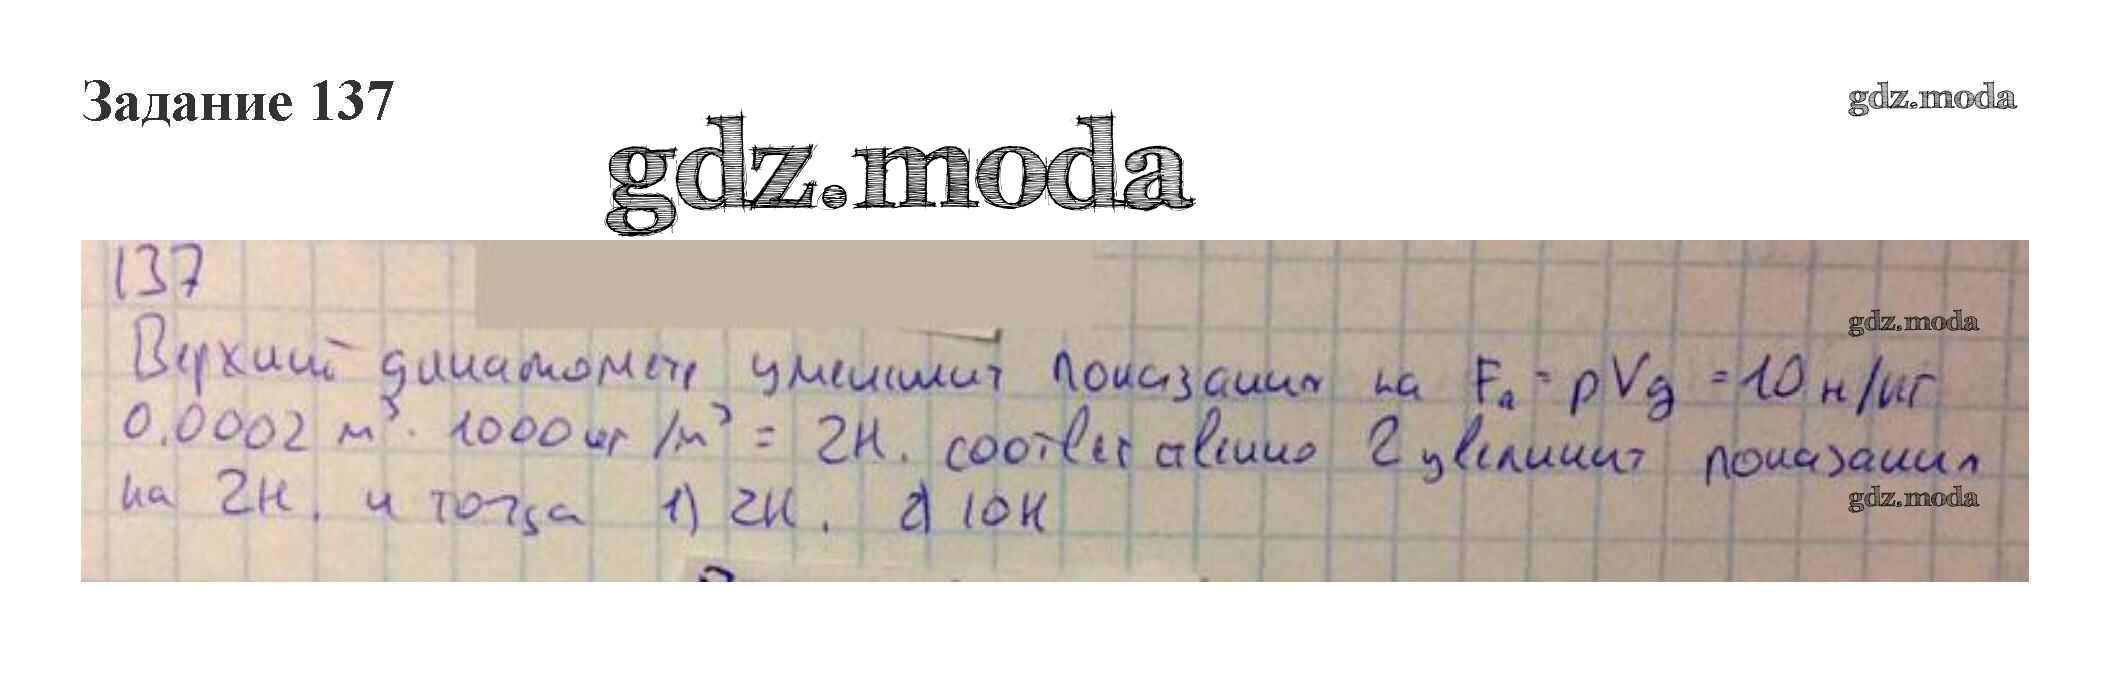 Задание 137
gdz.moda
gdz.moda
137
gdz.moda
Верхний динамометр уменьшит показания на Fа = ρVg = 10 н/кг
0,0002 м³ · 1000 кг/м³ = 2Н. соответственно 2 увеличит показания
на 2Н. и тогда 1) 2Н. 2) 10Н
gdz.moda